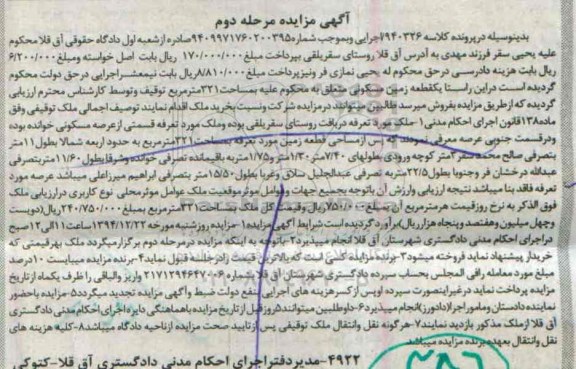 آگهی مزایده مرحله دوم
بدینوسیله درپرونده کلاسه ۹۴۰۳۲۶/اجرایی وبموجب شماره ۹۴۰۹۹۷۱۷۶۰۲۰۰۳۹۵صادره ازشعبه اول دادگاه حقوقی آق قلا محکوم
علیه یحیی سقر فرزند مهدی به آدرس آق قلا روستای سقریلقی بپرداخت مبلغ ۱۷۰/۰۰۰/۰۰۰ ریال بابت اصل خواسته ومبلغ ۶/۲۰۰/۰۰۰
ریال بابت هزینه دادرسی درحق محکوم له یحیی نمازی فر ونیزپرداخت مبلغ ۸/۸۱۰/۰۰۰ریال بابت نیمعشراجرایی درحق دولت محکوم
گردیده است دراین راستا یکقطعه زمین مسکونی متعلق به محکوم علیه بمساحت ۳۲۱مترمربع توقیف وتوسط کارشناس محترم ارزیابی
گردیده که ازطریق مزایده بفروش میرسد طالبین میتوانند درمزایده شرکت ونسبت بخرید ملک اقدام نمایند توصیف اجمالی ملک توقیفی وفق
ماده۱۳۸قانون اجرای احکام مدنی ۱-ملک مورد تعرفه دریافت روستای سقریلقی بوده وملک مورد تعرفه قسمتی ازعرصه مسکونی خوانده بوده
ودرقسمت جنوبی عرصه معرفی نمودند که پس ازمساحی قطعه زمین مورد تعرفه بمساحت ۳۲۱مترمربع به حدود اربعه شمالا بطول ۱۱متر
بتصرفی صالح محمد سقر ۳متر کوچه ورودی بطولهای ۷/۴۰متر ۱/۳۰متر و۱/۷۵متر به باقیمانده تصرفی خوانده وشرقا بطول ۱۱/۶۰متربتصرفی
عبداله درخشان فر وجنوبا بطول ۲۲/۵متر به تصرفی عبدالجلیل سلاق وغربا بطول ۱۵/۵۰متر بتصرفی ابراهیم میرزاعلی میباشد عرصه مورد
تعرفه فاقد بنا میباشد نتیجه ارزیابی وارزش آن باتوجه بجمیع جهات وعوامل موثرموقعیت ملک عوامل موثرمحلی نوع کاربری درارزیابی ملک
فوق الذکر به نرخ روزقیمت هرمترمربع آن بمبلغ ۷۵۰/۰۰۰ریال وقیمت کل ملک بمساحت ۳۲۱مترمربع بمبلغ ۲۴۰/۷۵۰/۰۰۰ریال(دویست
وچهل میلیون وهفتصد وپنجاه هزارریال)برآورد گردیده است شرایط آگهی مزایده ۱-مزایده روزشنبه مورخه ۱۳۹۴/۱۲/۲۲ساعت ۱۱الی۱۲صبح
دراجرای احکام مدنی دادگستری شهرستان آق قلا انجام میپذیرد ۲-باتوجه به اینکه مزایده درمرحله دوم برگزارمیگردد ملک بهرقیمتی که
خریدار پیشنهاد نماید فروخته میشود ۳-برنده مزایده کسی است که بالاترین قیمت رادرجلسه قبول نماید ۴-برنده مزایده میبایست ۱۰درصد
مبلغ مورد معامله رافی المجلس بحساب سپرده دادگستری شهرستان آق قلا بشماره ۲۱۷۱۲۹۴۶۴۷۰۰۶ واریز والباقی را ظرف یکماه ازتاریخ
مزایده پرداخت نماید درغیراینصورت سپرده اوپس ازکسرهزینه های اجرایی بنفع دولت ضبط وآگهی مزایده تجدید میگردد ۵-مزایده باحضور
نماینده دادستان وماموراجرا(دادورز)انجام میپذیرد ۶-داوطلبین میتوانند ۵روزقبل ازتاریخ مزایده باهماهنگی دایره اجرای احکام مدنی دادگستری
آق قلا ازملک مذکور بازدید نمایند ۷-هرگونه نقل وانتقال ملک توقیفی پس ازتایید صحت مزایده ازناحیه دادگاه میباشد ۸-کلیه هزینه های
نقل وانتقال بعهده برنده مزایده میباشد
۴۹۲۲-مدیردفتراجرای احکام مدنی دادگستری آق قلا-کتوکی
۲۸۶